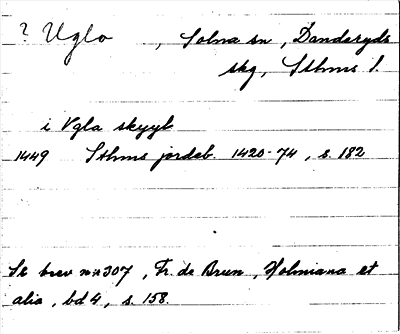 ? Ugla , Solna sn , Danderyds
skg, Sthms l.
i Vgla skyyl
1449 Sthms jordeb. 1420-74 , s. 182
Se brev nr 307 , Fr. de Brun , Holmiana et
alia , bd 4 , s. 158.